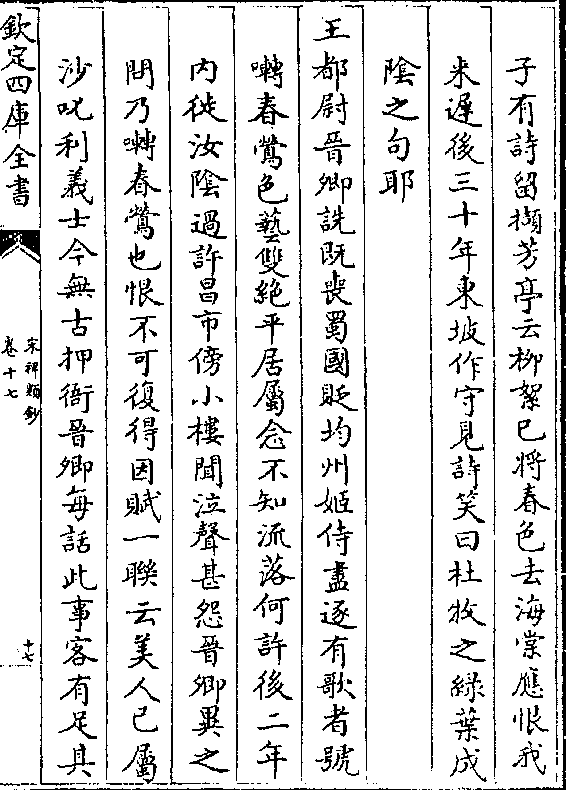 子有詩留擷芳亭云柳絮已將春色去海棠應恨我
来遲後三十年東坡作守見詩笑曰杜牧之綠葉成
陰之句耶
王都尉晉卿詵既䘮蜀國貶均州姬侍盡逐有歌者號
囀春鶯色藝雙絶平居屬念不知流落何許後二年
内徙汝陰過許昌市傍小樓聞泣聲甚怨晉卿異之
問乃囀春鶯也恨不可復得因賦一聯云美人已屬
沙吒利義士今無古押衙晉卿每話此事客有足其
欽定四庫全書
宋稗類鈔
卷十七
十七